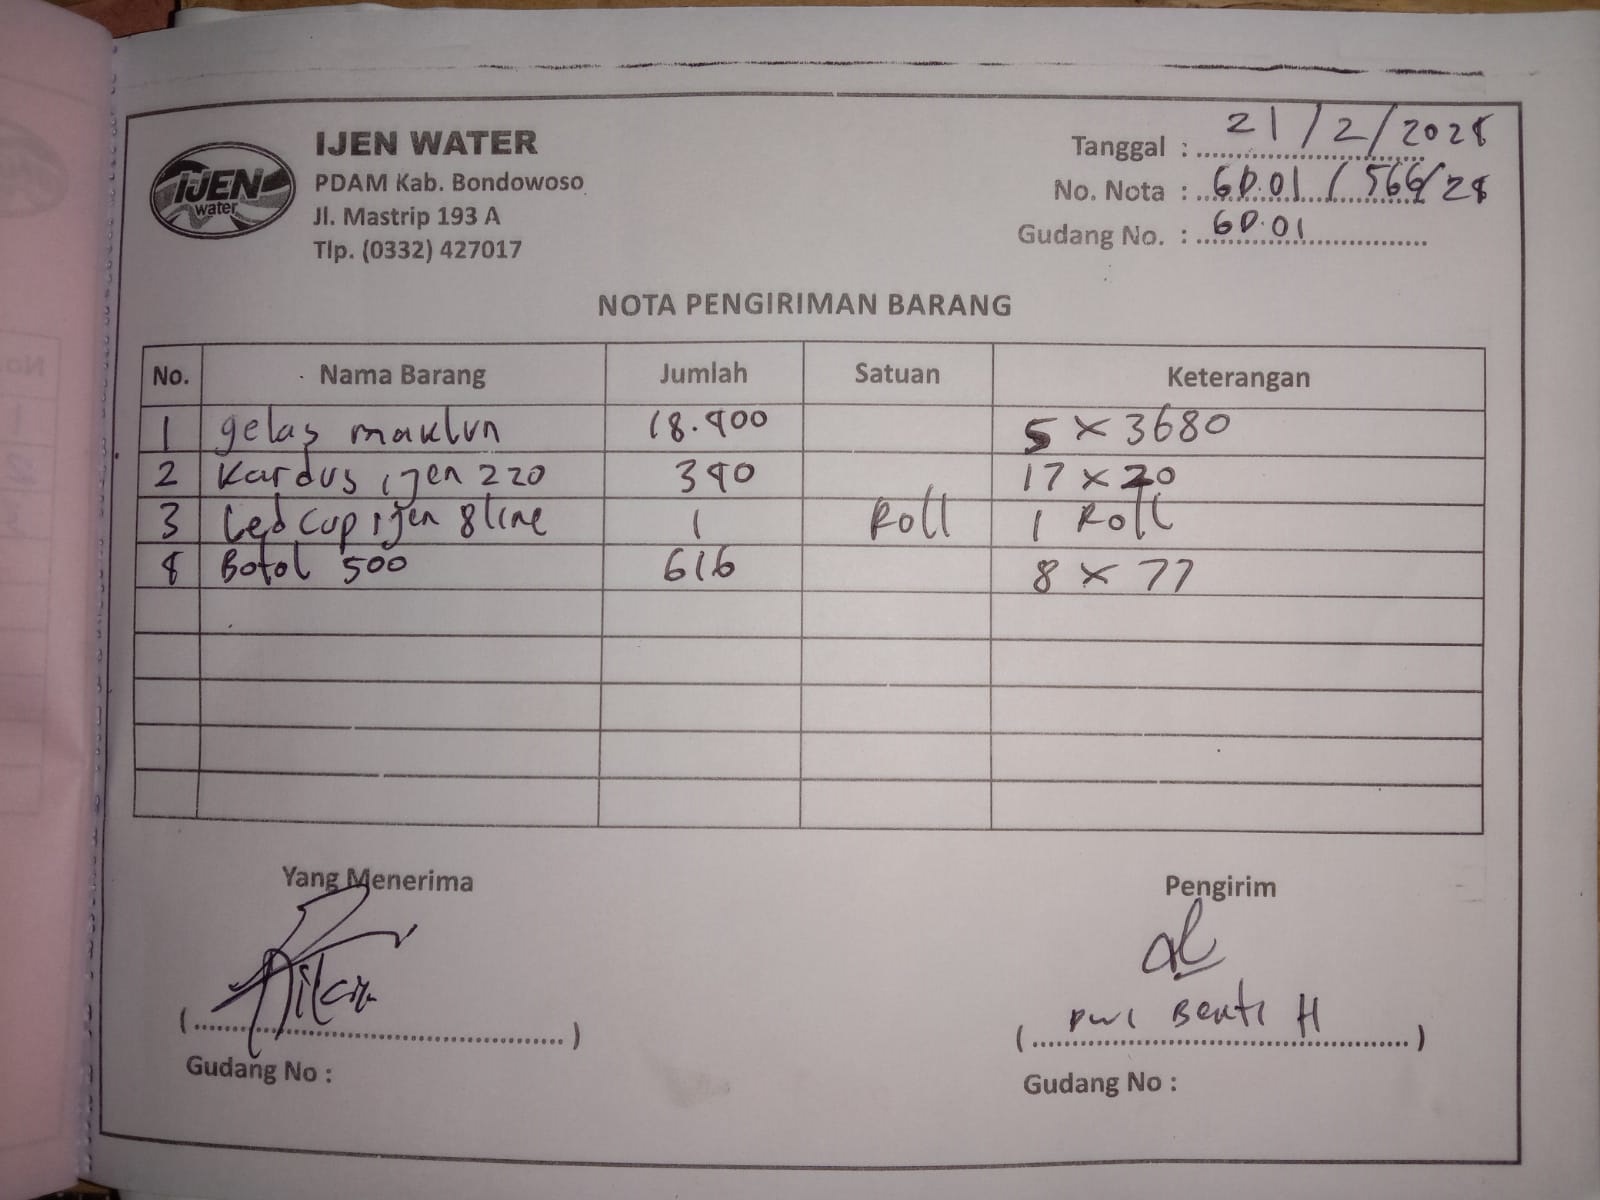 IJEN WATER
PDAM Kab. Bondowoso
Jl. Mastrip 193 A
Tlp. (0332) 427017
IJEN
water
Tanggal : 21/2/2024
No. Nota : GD.01/566/24
Gudang No. : GD.01
NOTA PENGIRIMAN BARANG
No. Nama Barang Jumlah Satuan Keterangan
1 gelas maklun 18.400 5 x 3680
2 Kardus ijen 220 340 17 x 20
3 Led cup ijen 8 line 1 Roll 1 Roll
4 Botol 500 616 8 x 77
Yang Menerima Pengirim
( ) ( Dwi H )
Gudang No : Gudang No :